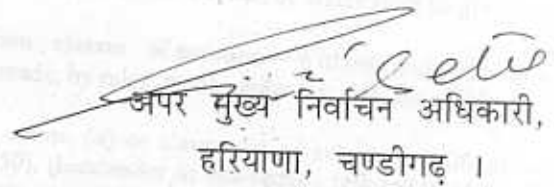 अपर मुख्य निर्वाचन अधिकारी,
हरियाणा, चण्डीगढ़ ।